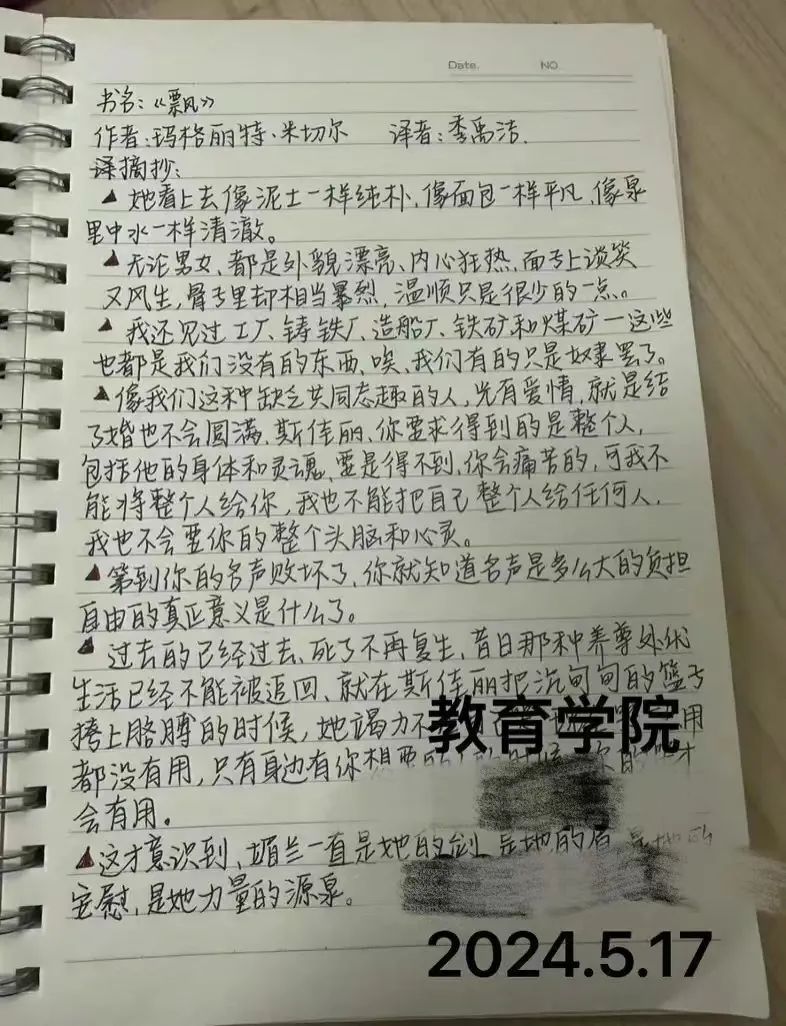 Date. NO
书名:《飘》
作者:玛格丽特·米切尔 译者:李禹洁.
摘抄:
▲ 她看上去像泥土一样纯朴,像面包一样平凡,像泉
里中水一样清澈。
▲ 无论男女、都是外貌漂亮、内心狂热,面与上谈笑
又风生,骨与里却相当暴烈,温顺只是很少的一点。
▲ 我还见过工厂、铸铁厂、造船厂、铁矿和煤矿一这些
也都是我们没有的东西、唉、我们有的只是奴隶罢了。
▲像我们这种缺乏共同志趣的人,光有爱情,就是结
了婚也不会圆满、斯佳丽、你要求得到的是整个人,
包括他的身体和灵魂、要是得不到,你会痛苦的,可我不
能将整个人给你,我也不能把自己整个人给任何人,
我也不会要你的整个头脑和心灵。
▲ 等到你的名声败坏了,你就知道名声是多么大的负担
自由的真正意义是什么了。
▲ 过去的已经过去、死了不再复生,昔日那种养尊处优
生活已经不能被追回、就在斯佳丽把沉甸甸的篮子
挎上胳膊的时候,她竭力不
教育学院
用
都没有用,只有身边有你想要的 时候 你的 才
会有用。
▲这才意识到、媚兰一直是她的剑 是她的盾 是她的
安慰,是她力量的源泉。
2024.5.17